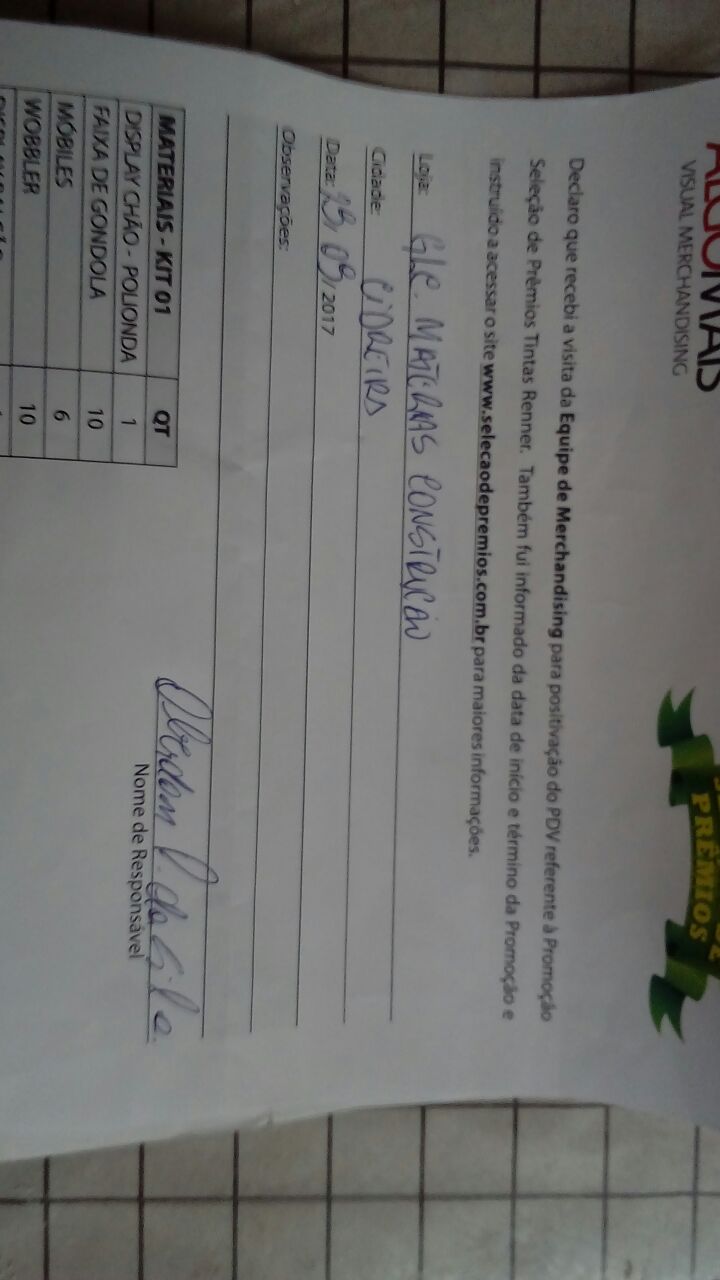 ALGOMAIS
VISUAL MERCHANDISING
PRÊMIOS
Declaro que recebi a visita da Equipe de Merchandising para positivação do PDV referente à Promoção
Seleção de Prêmios Tintas Renner. Também fui informado da data de início e término da Promoção e
instruído a acessar o site www.selecaodepremios.com.br para maiores informações.
Loja: G/C. MATERIAS CONSTRUCAO
Cidade: CIDREIRA
Data: /09/2017
Observações:
da Silva
Nome de Responsável
MATERIAIS - KIT 01 QT
DISPLAY CHÃO - POLIONDA 1
FAIXA DE GONDOLA 10
MÓBILES 6
WOBBLER 10